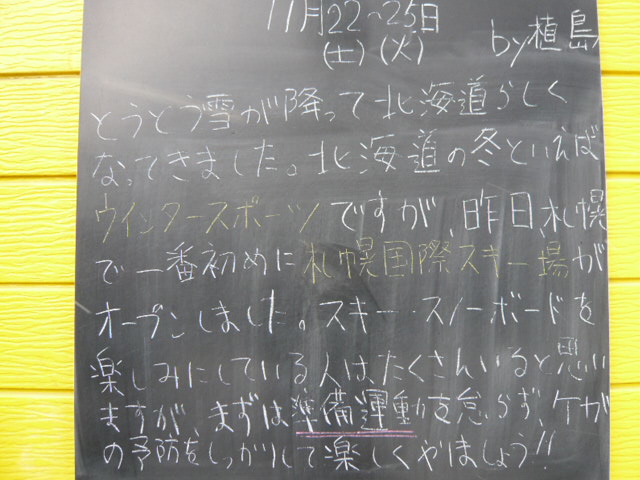 11月22~25日
(土)(火)
by植島
とうとう雪が降って北海道らしく
なってきました。北海道の冬といえば
ウインタースポーツですが、昨日、札幌
で一番初めに札幌国際スキー場が
オープンしました。スキー・スノーボードを
楽しみにしている人はたくさんいると思い
ますが、まずは準備運動を怠らず、ケガ
の予防をしっかりして楽しくやましょう!!